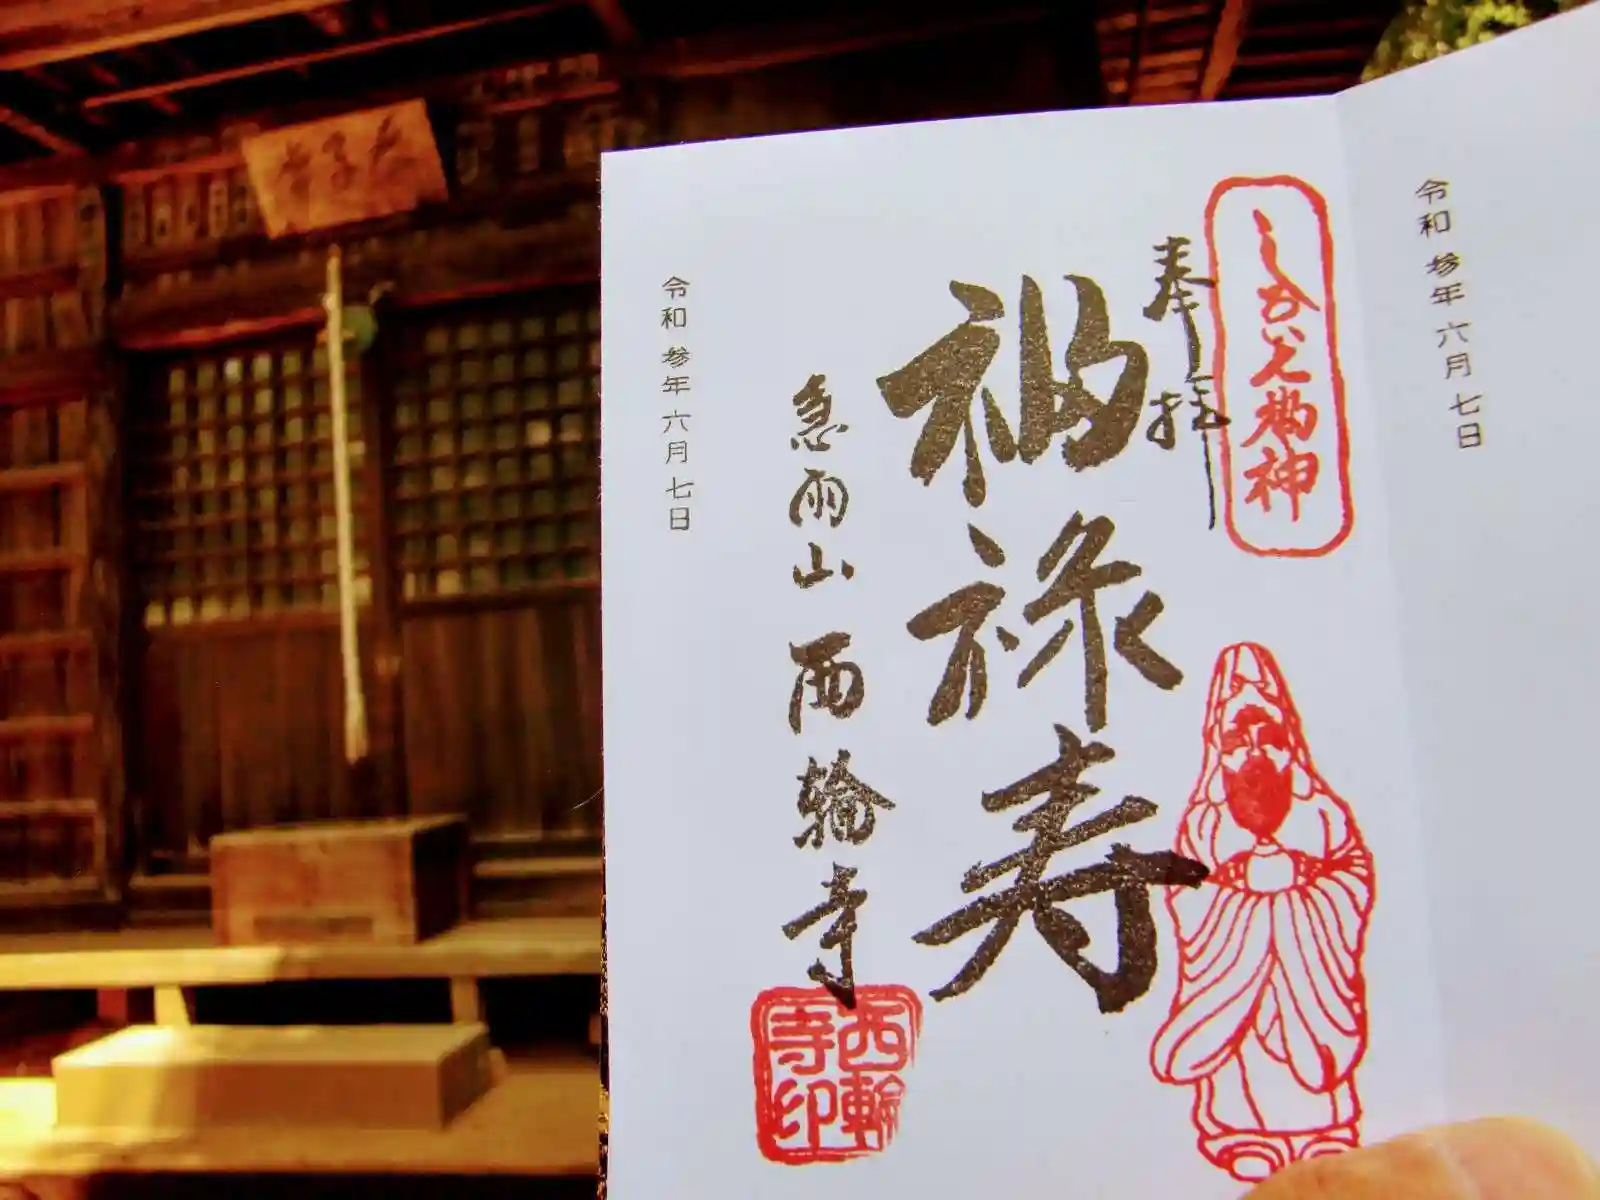 太子堂
令和 参年 六月 七日
福神
奉拝
福禄寿
急雨山 西輪寺
西輪
寺印
令和 参年 六月 七日